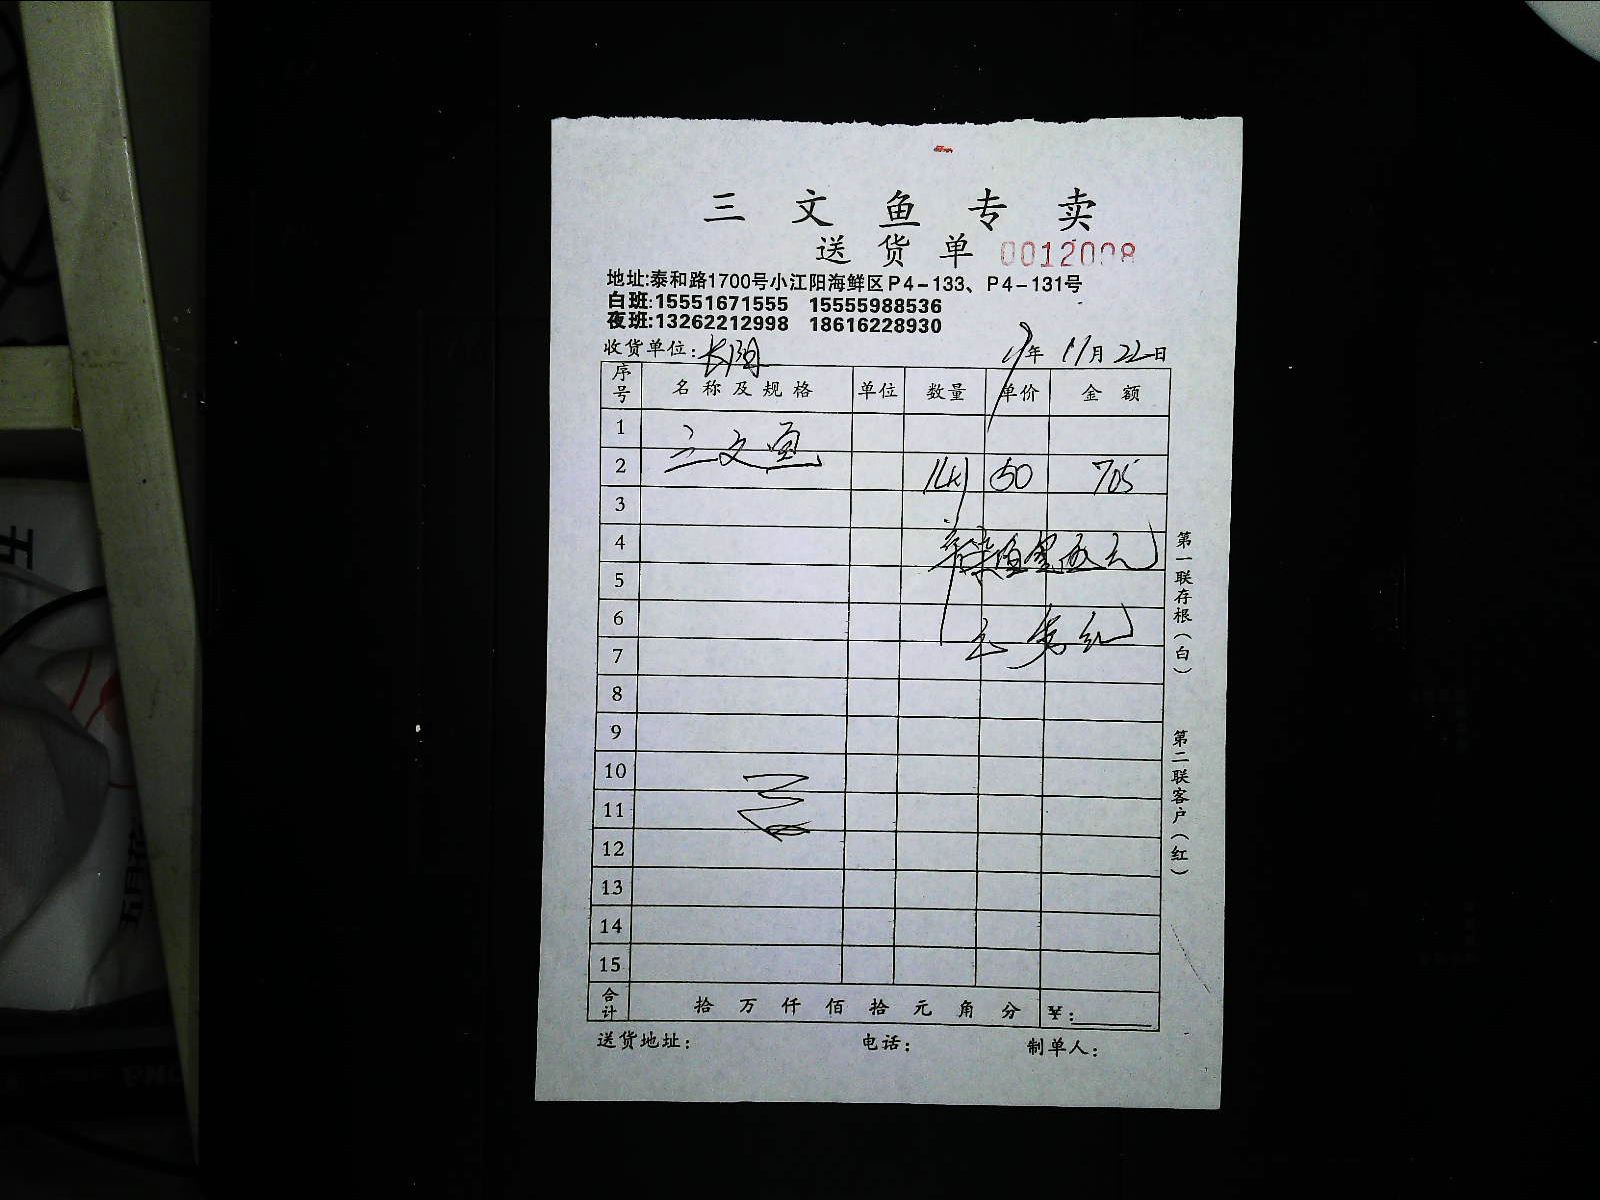 三文鱼专卖
送货单 0012008
地址:泰和路1700号小江阳海鲜区P4-133、P4-131号
白班:15551671555 15555988536
夜班:13262212998 18616228930
收货单位: 年 11月 22日
序号 名称及规格 单位 数量 单价 金额
1 三文鱼
2 50 705
3
4
5
6
7
8
9
10
11
12
13
14
15
合计 拾万仟佰拾元角分 ¥:
送货地址: 电话: 制单人:
第一联存根(白)
第二联客户(红)
五